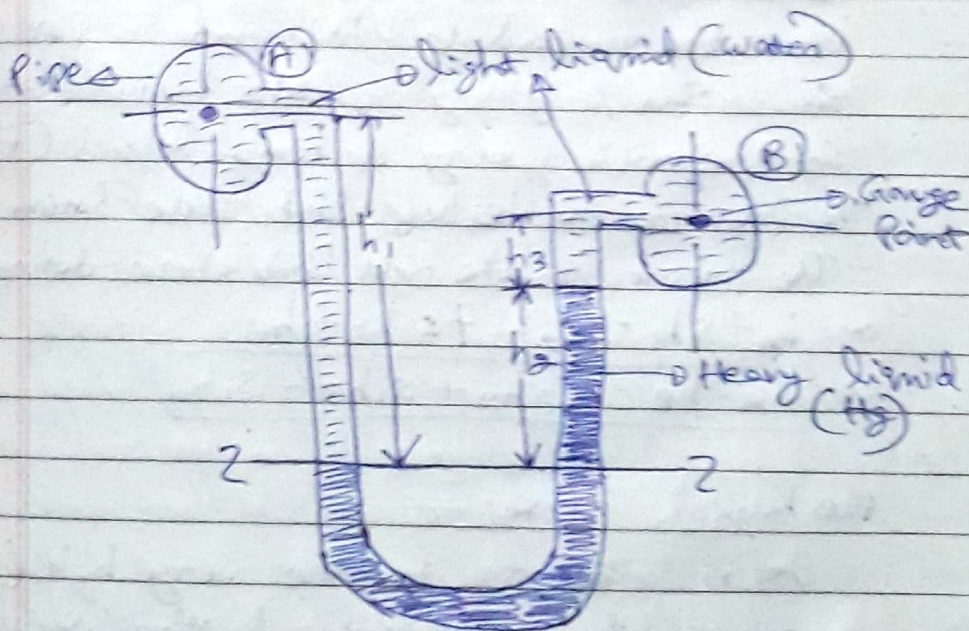 Pipe
A
light liquid (water)
B
Gauge
Point
h1
h3
h2
Heavy liquid
(Hg)
Z
Z